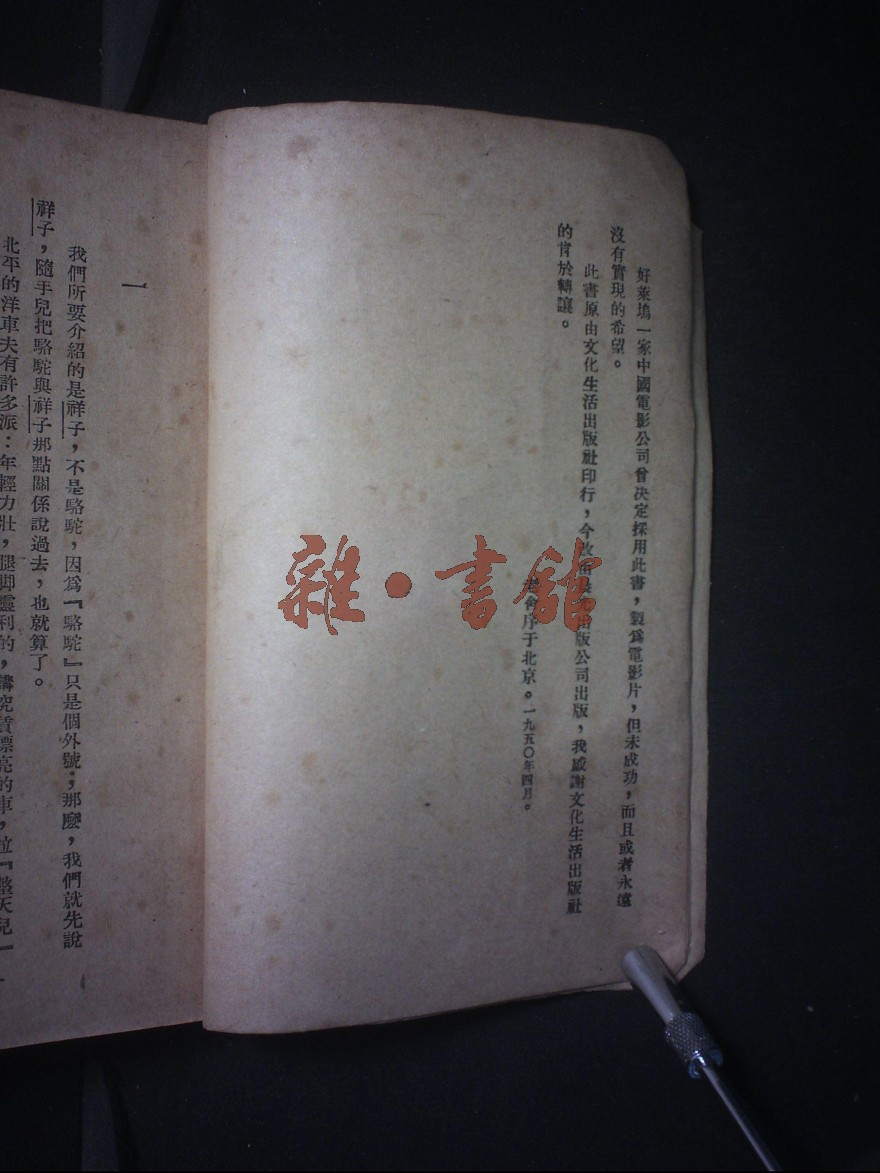 好萊塢一家中國電影公司曾決定採用此書，製爲電影片，但未成功，而且或者永遠
沒有實現的希望。
此書原由文化生活出版社印行，今改由出版公司出版，我感謝文化生活出版社
的肯於轉讓。
老舍序于北京。一九五〇年四月。
一
我們所要介紹的是祥子，不是駱駝，因爲『駱駝』只是個外號；那麼，我們就先說
祥子，隨手兒把駱駝與祥子那點關係說過去，也就算了。
北平的洋車夫有許多派：年輕力壯，腿脚靈利的，講究賃漂亮的車，拉『整天兒』
雜·書館